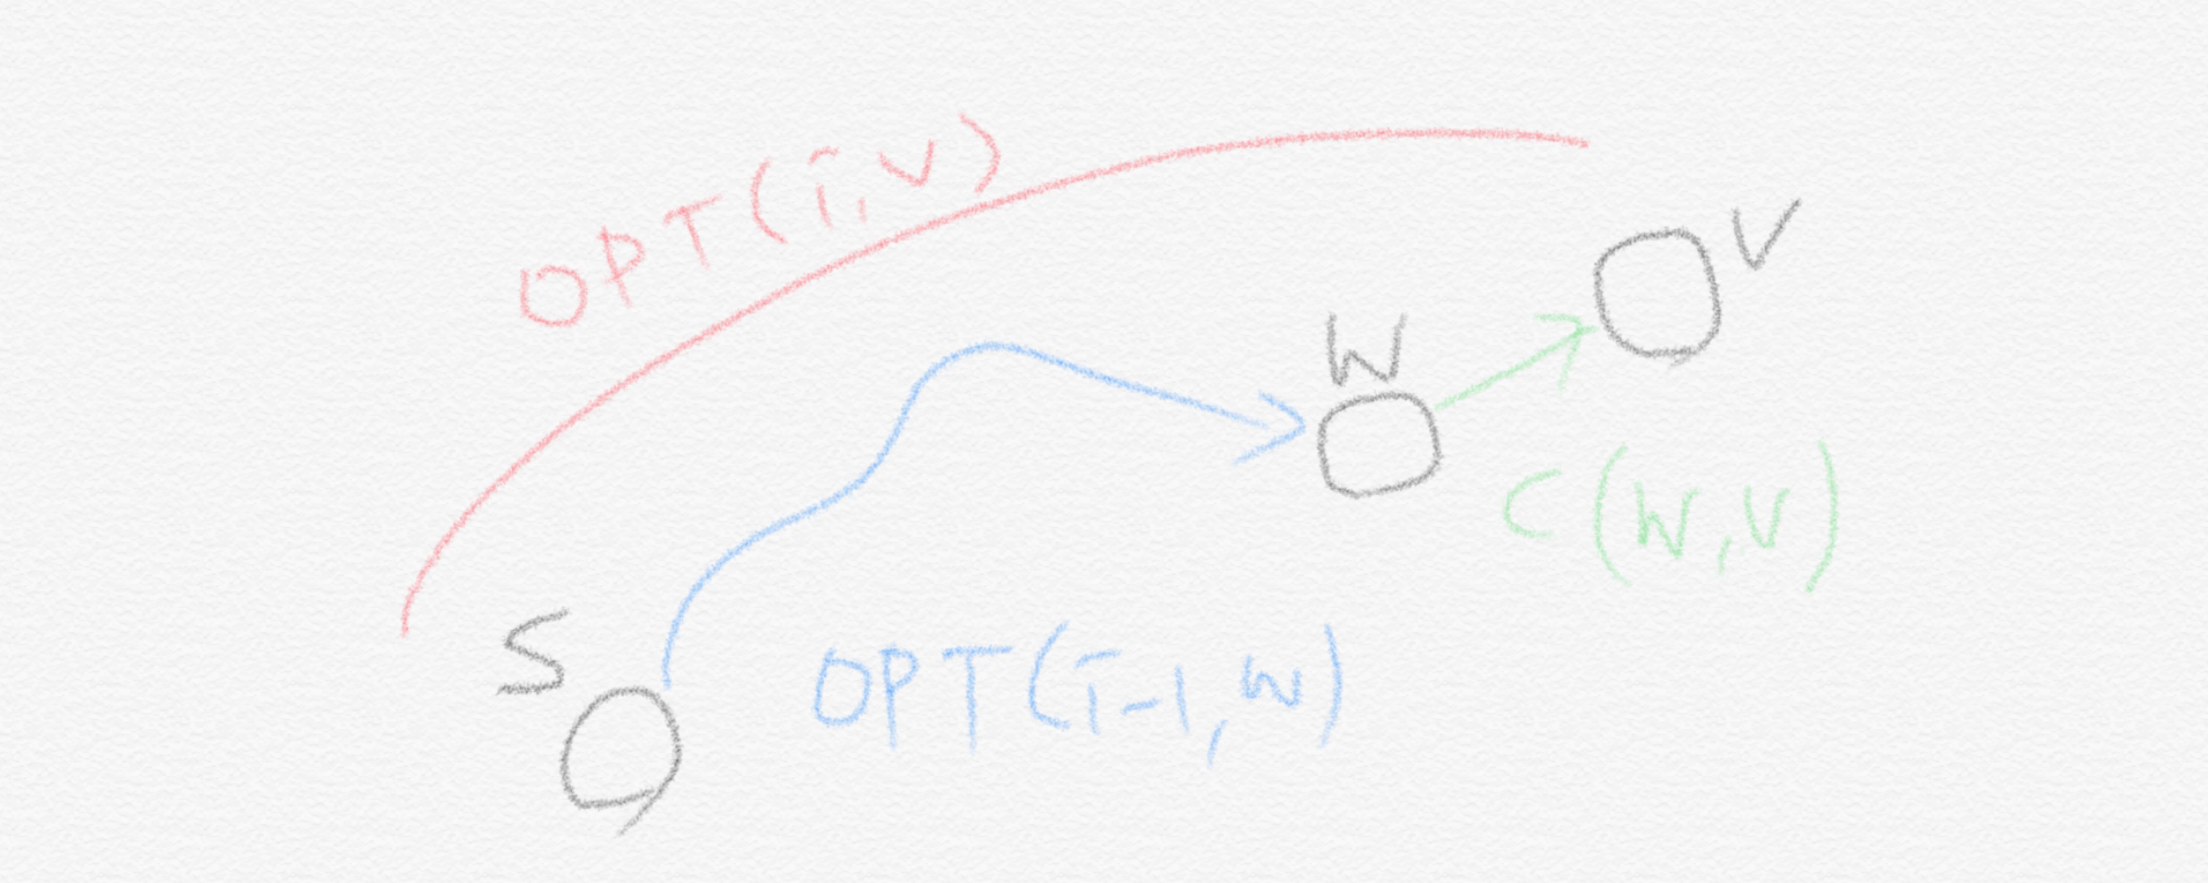 OPT(i,v)
V
W
C(W,V)
S
OPT(i-1,w)